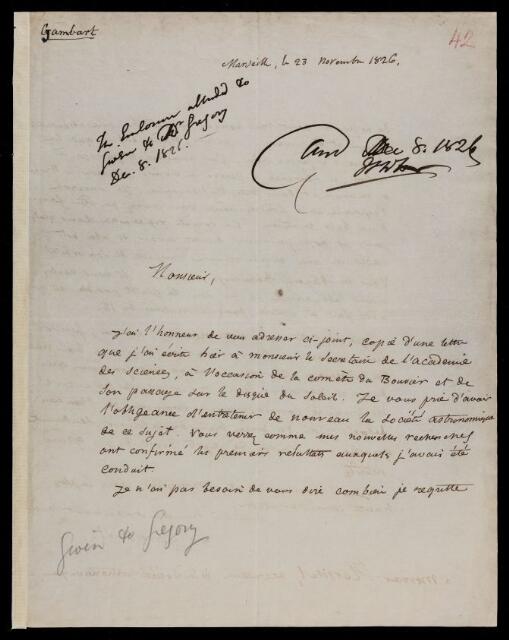 Gambart
42
Marseille, le 23 Novembre 1826.
The Enclosure alluded to
Given to Dr Gregory
Dec. 8. 1826.
Dec 8. 1826
Monsieur,
J'ai l'honneur de vous adresser ci-joint, copie d'une lettre
que j'ai écrite hier à monsieur le secrétaire de l'académie
des sciences, à l'occasion de la comète du Bouvier et de
son passage sur le disque du soleil. Je vous prie d'avoir
l'obligeance d'entretenir de nouveau la société astronomique
de ce sujet. Vous verrez comme mes nouvelles recherches
ont confirmé les premiers résultats auxquels j'avais été
conduit.
Je n'ai pas besoin de vous dire combien je regrette
Given to Gregory